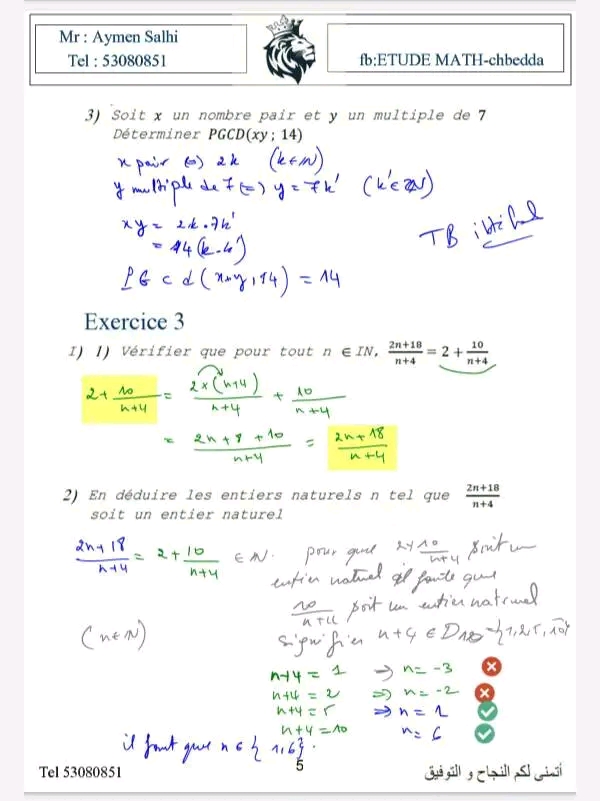 Mr : Aymen Salhi
Tel : 53080851
fb:ETUDE MATH-chbedda
3) Soit x un nombre pair et y un multiple de 7
Déterminer PGCD(xy; 14)
x pair (=) 2k (k∈N)
y multiple de 7 (=) y = 7k' (k'∈N)
xy = 2k.7k'
= 14(k.k')
PGcd(x+y,14) = 14
TB
Exercice 3
I) 1) Vérifier que pour tout n ∈ IN, (2n+18)/(n+4) = 2 + 10/(n+4)
2 + 10/(n+4) = 2×(n+4)/(n+4) + 10/(n+4)
= (2n+8+10)/(n+4) = (2n+18)/(n+4)
2) En déduire les entiers naturels n tel que (2n+18)/(n+4)
soit un entier naturel
(2n+18)/(n+4) = 2 + 10/(n+4) ∈ N. pour que 2+10/(n+4) soit un
entier naturel il faute que
10/(n+4) soit un entier natruel
(n∈N) signifier n+4 ∈ D10={1,2,5,10}
n+4 = 1 => n = -3
n+4 = 2 => n = -2
n+4 = 5 => n = 1
n+4 = 10 n = 6
il faut que n ∈ {1,6}.
5
Tel 53080851
أتمنى لكم النجاح و التوفيق